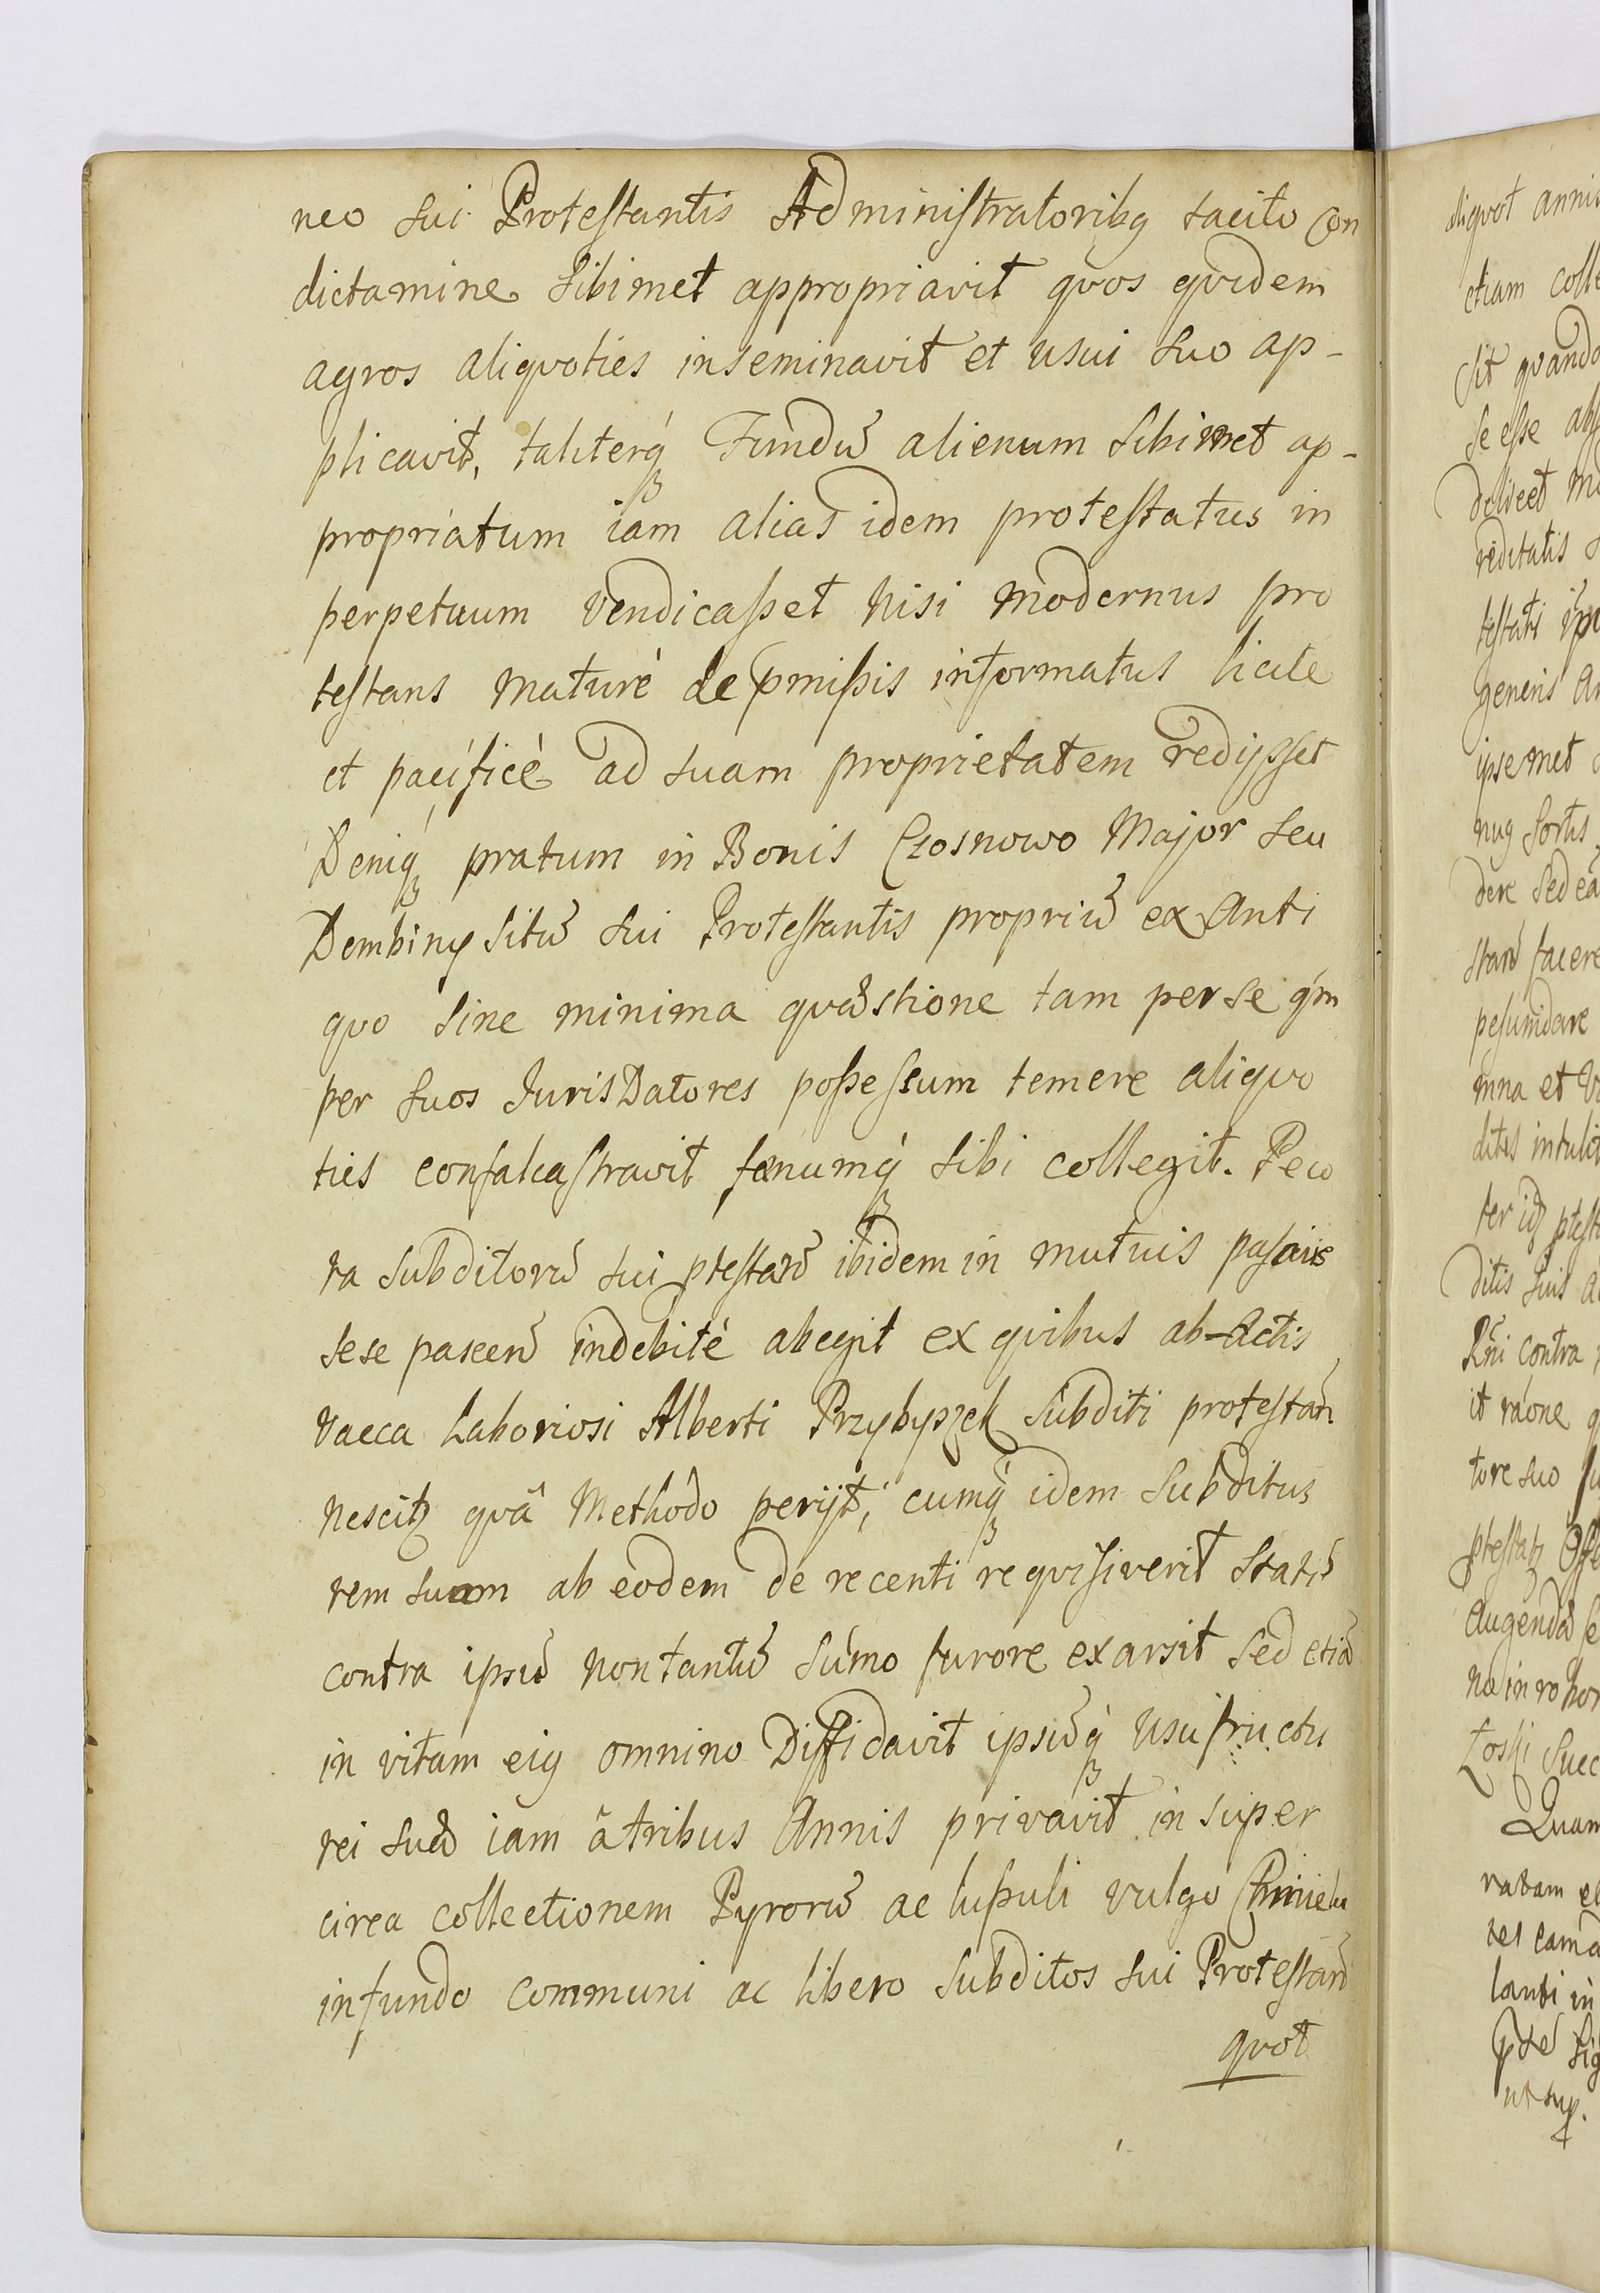 neo sui Protestantis Administratoribq tacito Con
dictamine sibimet appropriavit qvos qvidem
agros aliqvoties inseminavit et usui suo ap-
plicavit, taliterq́ꝫ Fundū alienum sibimet ap-
propriatum iam alias idem protestatus in
perpetuum vendicasset nisi modernus pro
testans maturè de pmissis informatus licite
et pacificè ad suam proprietatem redijsset
Deniq́ꝫ pratum in Bonis Czosnowo Major seu
Dembiny sitū sui Protestantis propriū ex Anti
qvo sine minima qvæstione tam per se q́m
per suos Juris Datores possessum temere aliqvo
ties confalcastravit fænumq́ꝫ sibi collegit. Peco
ra subditorū sui ptestań ibidem in mutuis pascuis
sese pasceń indebitè abegit ex qvibus ab-actis
vacca Laboriosi Alberti Przybyszek subditi protestań
nescitꝫ qvâ Methodo perijt, cumq́ꝫ idem subditus
rem suam ab eodem de recenti reqvisiverit statī
contra ipsū non tantū sūmo furore exarsit sed etiā
in vitam eiq omnino Diffidavit ipsūq́ꝫ usufructu
rei suæ iam â tribus Annis privavit in super
circa collectionem Pyrorū ac lupuli vulgo Chmielu
in fundo communi ac libero subditos sui Protestań
qvot
aliqvot annis
etiam colle
sit qvando
se esse abs
reditatis
testati ipsi
generis
ipsemet
nuq sortis
dere sed eā
stań facere
pesumdare
mna et
ditis intulit
ter idꝫ ptest
ditis suis
Rńi contra
it ráone
tore suo
ptestatꝫ
augendæ se
Quam
vadam
ut sup.